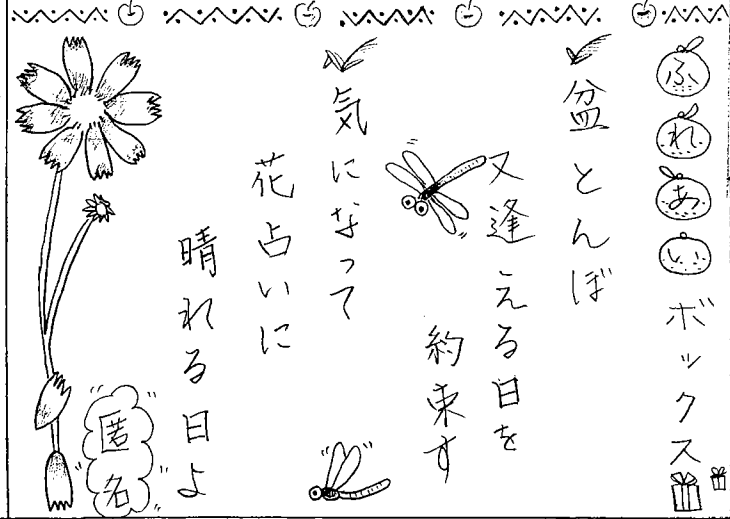 ふれあいボックス
盆とんぼ
又逢える日を
約束す
気になって
花占いに
晴れる日よ
匿名